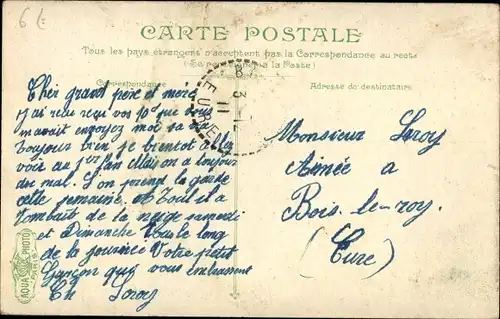 6 E
CARTE POSTALE
Tous les pays étrangers n'acceptent pas la Correspondance au recto
(Se renseigner à la Poste)
Correspondance
Adresse du destinataire
8
3
11
EURE
Cher grand pere et mere
j'ai reçu vos 10f que vous
m'avait envoyez moi sa va
toujour bien je bientot aller
voir au 1er fan Maison a toujour
du mal. L'on prend la garde
cette semaine et Tool il a
tombait de la neige samedi
et Dimanche tous le long
de la journée Votre petit
Garçon qui vous embrassent
Ch Leroy
Monsieur Leroy
Aimée a
Bois-le-roy
(Eure)
AQUA PHOTO
PARIS